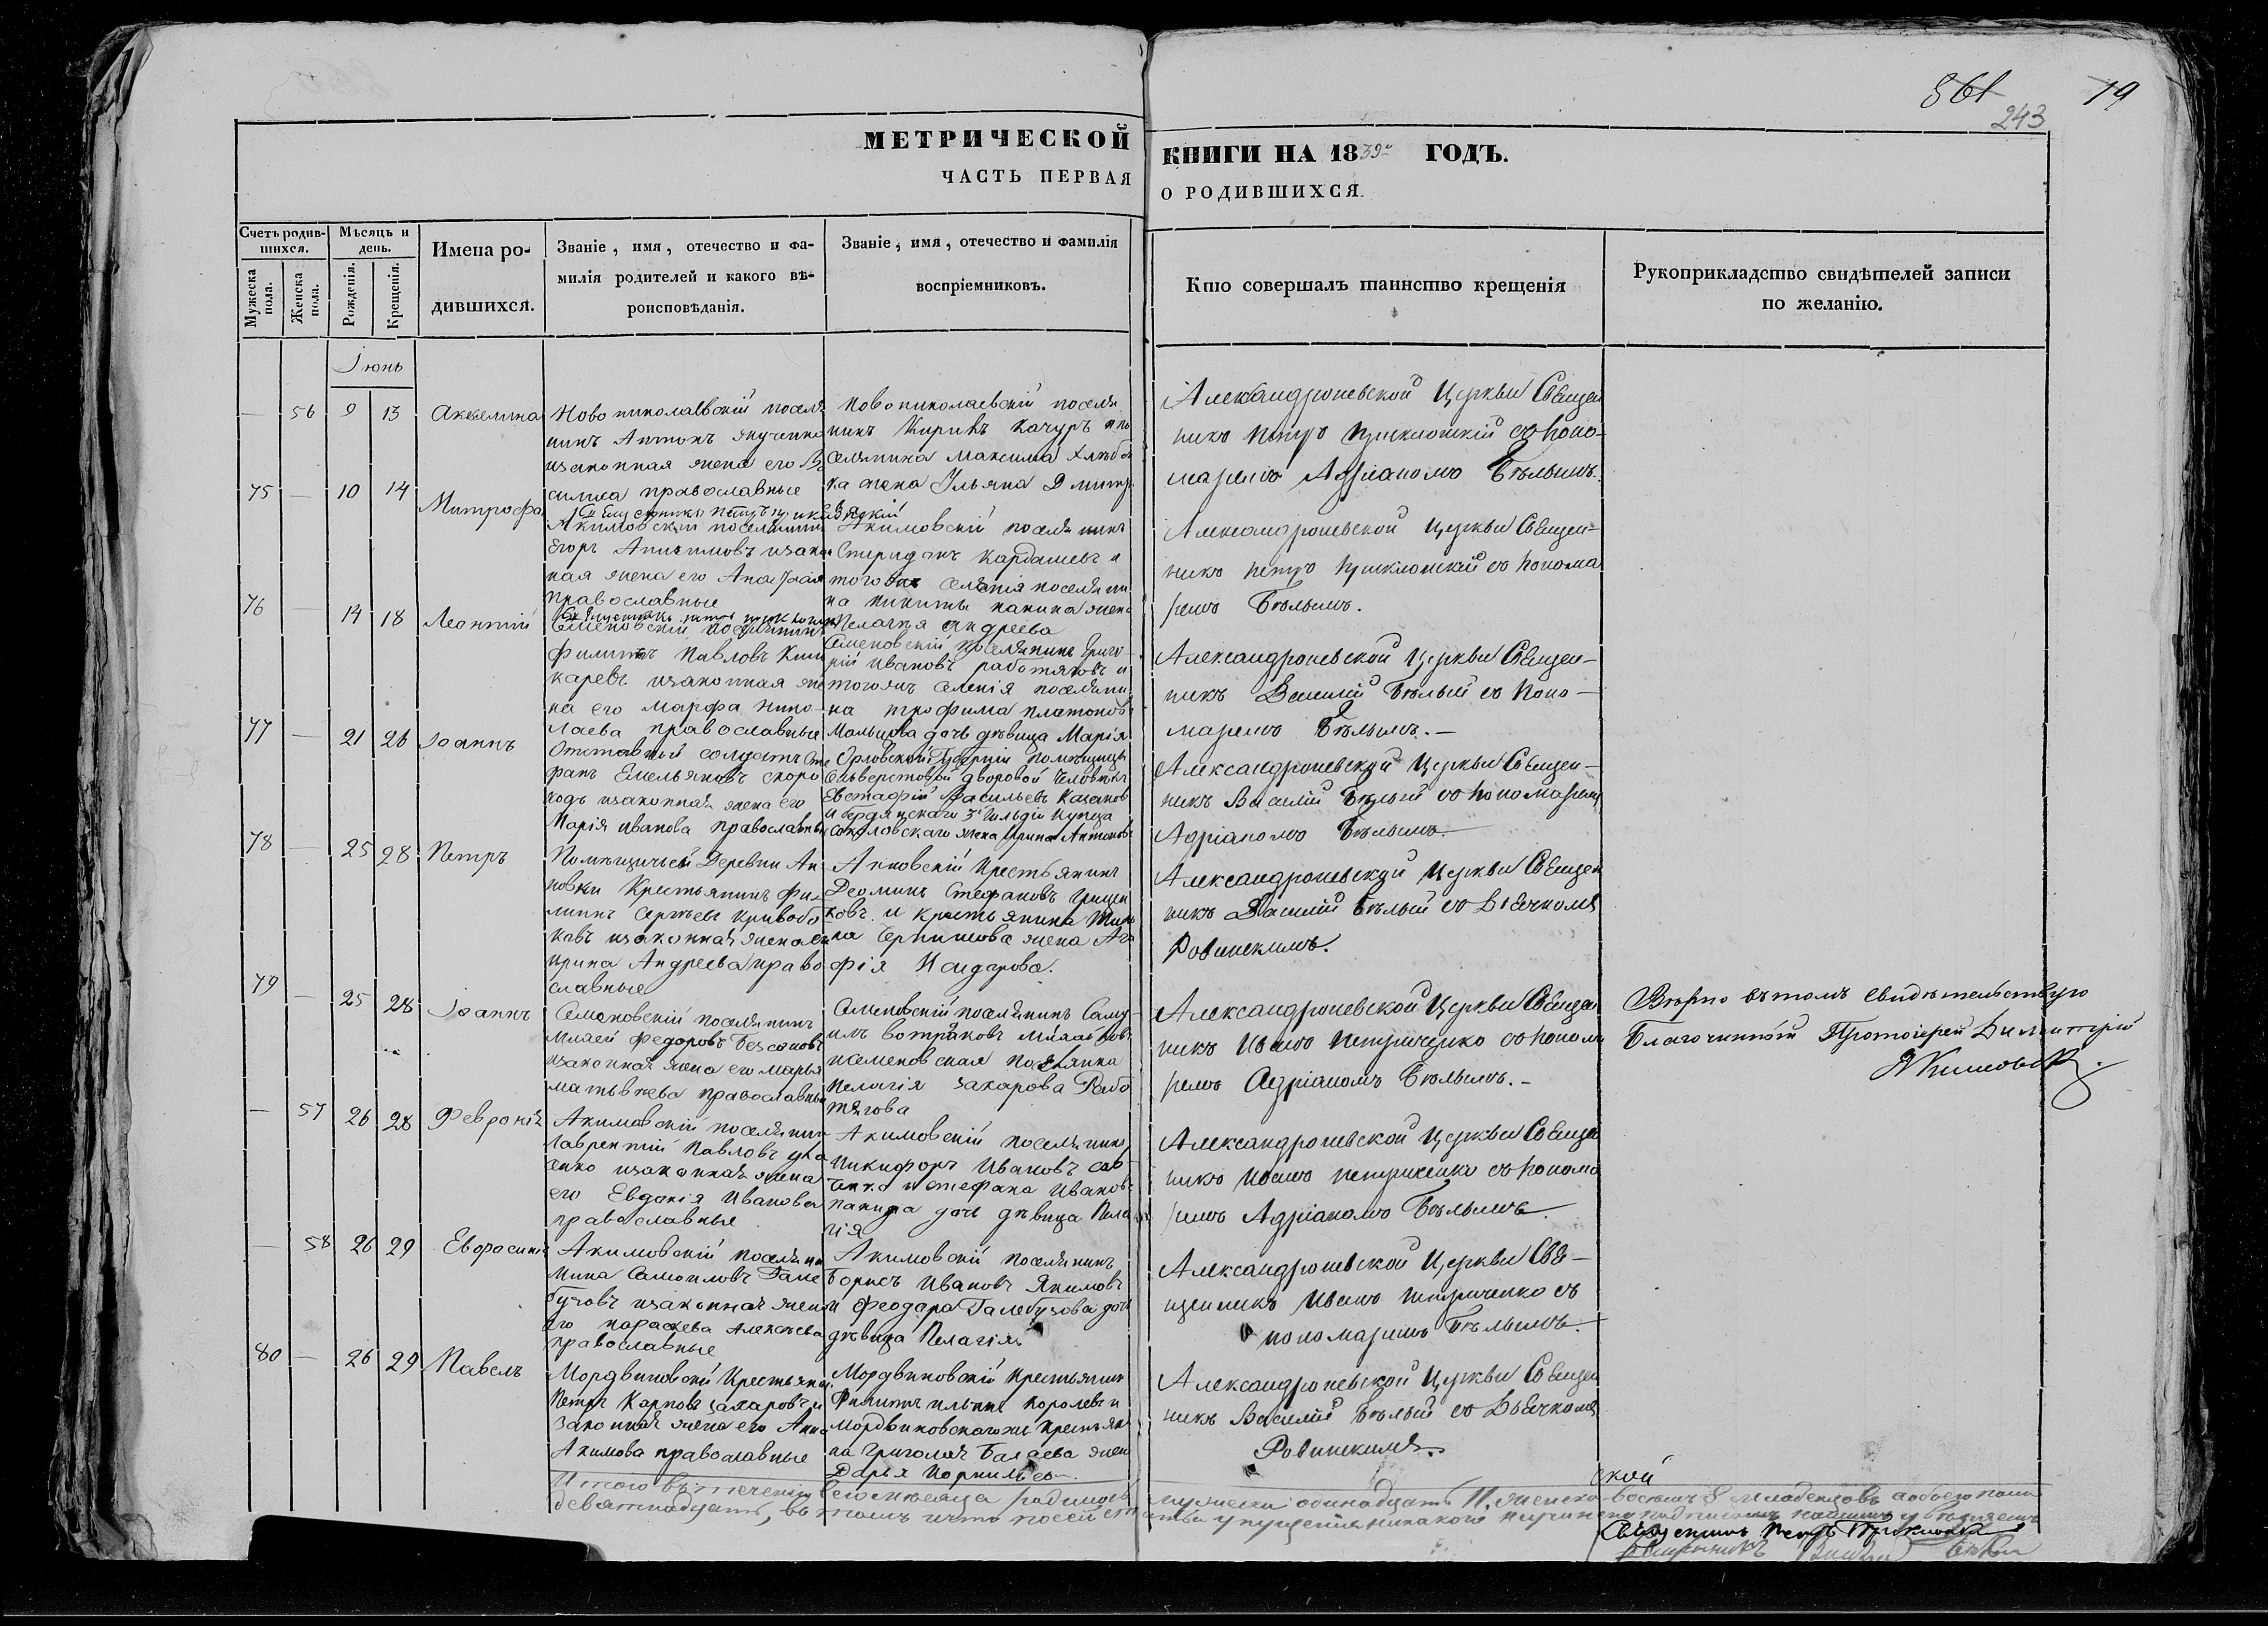 861 19
243
МЕТРИЧЕСКОЙ КНИГИ НА 1839 ГОДЪ.
ЧАСТЬ ПЕРВАЯ О РОДИВШИХСЯ.
Счетъ родив-
шихся.
Мужеска пола.
Женска пола.
Мѣсяцъ и
день.
Рожденія.
Крещенія.
Имена ро-
дившихся.
Званіе, имя, отечество и фа-
милія родителей и какого вѣ-
роисповѣданія.
Званіе, имя, отечество и фамилія
воспріемниковъ.
Кто совершалъ таинство крещенія
Рукоприкладство свидѣтелей записи
по желанію.
Іюнь
— 56 9 13 Акилина
Ново николаевскій поселя
нинъ Антонъ
изаконная жена его Ва
силиса православные
Новониколаевскій поселя
нинъ Кирикъ Качуръ и по
селянина Максима Хлѣбо
ка жена Ульяна Дмитр
Александроневской Церкви Священ
никъ Петръ съ Поно-
маремъ Адріаномъ Бѣлымъ.
75 — 10 14 Митрофа
Акимовскій поселянинъ
Егоръ Анисимовъ изакон
ная жена его Анастасія
православные
Акимовскій поселянинъ
Спиридонъ Кардашевъ и
тогожъ селенія поселяни
на Никиты Панина жена
Пелагія Андреева
Александроневской Церкви Священ-
никъ Петръ съ Понома
ремъ Бѣлымъ.
76 — 14 18 Леонтій
Семеновскій поселянинъ
Филиппъ Павловъ Кош
каревъ изаконная же
на его Марфа Нико
лаева православные
Семеновскій поселянинъ Григо
рій Ивановъ работяговъ и
тогожъ селенія поселяни
на Трофима Платонов
Мальцова дочь дѣвица Марія
Александроневской Церкви Священ-
никъ Василій Бѣлый съ Поно-
маремъ Бѣлымъ.—
77 — 21 26 Іоаннъ
Отставный солдатъ Сте
фанъ Емельяновъ скоро
ходъ изаконная жена его
Марія Иванова православны
Орловской Губерніи помѣщицы
Сильверстовой дворовой человѣкъ
Евстафій Васильевъ Казаков
и бердянскаго 3й Гильдіи Купца
Соколовскаго жена Ирина Антонов
Александроневской Церкви Священ-
никъ Василій Бѣлый съ Пономаремъ
Адріаномъ Бѣлымъ.—
78 — 25 28 Петръ
Помѣщичьей Деревни Ан
новки Крестьянинъ Фи-
липпъ Сергѣевъ Кривобо
ковъ изаконная жена его
Ирина Андреева право
славные
Анновскій Крестьянинъ
Деоминъ Стефановъ Грицен
ковъ и крестьянина
на Чернышова жена Ага
фія Исидорова.
Александроневской Церкви Священ
никъ Василій Бѣлый съ Дьячкомъ
Ровинскимъ.
79 — 25 28 Іоаннъ
Семеновскій поселянинъ
Федоровъ Безсонов
изаконная жена его Марья
Матвѣева православны
Семеновскій поселянинъ Саму
илъ Вотряковъ
исеменовская поселянка
Пелагія Захарова Рабо
тягова
Александроневской Церкви Священ
никъ Иванъ Петриченко съ Понома
ремъ Адріаномъ Бѣлымъ.—
Вѣрно въ томъ свидѣтельствую
Благочинный Протоіерей Димитрій
— 57 26 28 Февронія
Акимовскій поселянин
Лаврентій Павловъ
енко изаконная жена
его Евдокія Иванова
православные
Акимовскій поселянинъ
Никифоръ Ивановъ Сав
ченко и Стефана Иванов
Панина дочь дѣвица Пела
гія
Александроневской Церкви Священ
никъ Иванъ Петриченко съ Понома
ремъ Адріаномъ Бѣлымъ.
— 58 26 29 Евфросинія
Акимовскій поселяни
Мина Самоиловъ Гале
бузовъ изаконная жена
его Параскева Алексѣева
православные
Акимовскій поселянинъ
Борисъ Ивановъ Якимовъ
и Феодора Галебузова дочь
дѣвица Пелагія
Александроневской Церкви Свя-
щенникъ Иванъ Петриченко съ
пономаремъ Бѣлымъ.
80 — 26 29 Павелъ
Мордвиновскій Крестьянин
Петръ Карповъ Захаровъ и
законная жена его Анна
Акимова православные
Мордвиновскій Крестьянин
Филиппъ Ильинъ Королевъ и
Мордвиновскагожъ Крестьяни
на Григолая Балаева жена
Дарья Корнильев
Александроневской Церкви Священ
никъ Василій Бѣлый съ Дьячкомъ
Ровинскимъ.
Итого въ теченіи сего мѣсяца родилось мужеска одинадцать 11, женска восемь 8 младенцовъ а обоего пола
девятнадцать, въ томъ что по сей статьи упущенія никакого неучинено подписомъ нашимъ увѣряемъ
Священникъ Петръ
Священникъ Василій Бѣлый